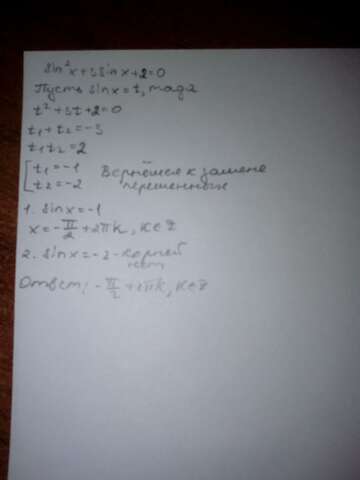 sin²x+3sinx+2=0
Пусть sinx=t, тогда
t²+3t+2=0
t₁+t₂=-3
t₁t₂=2
[t₁=-1 Вернёмся к замене
t₂=-2 переменных
1. sinx=-1
x=-π/2+2πk, k∈Z
2. sinx=-2-корней
нет
Ответ: -π/2+2πk, k∈Z